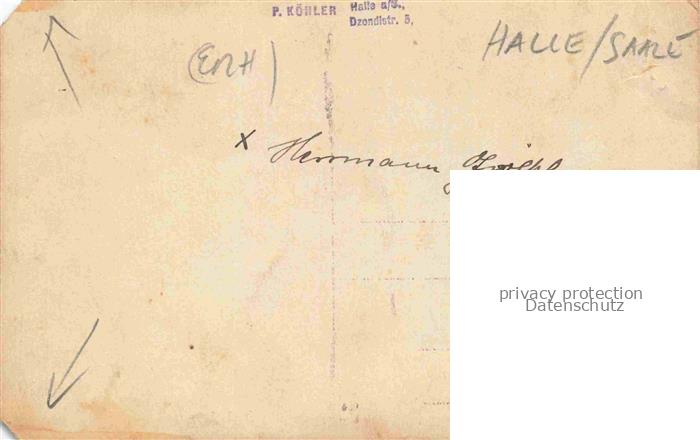 P. KÖHLER Halle a/S.,
Dzondistr. 5,
HALLE/SAALE
x Herrmann
privacy protection
Datenschutz